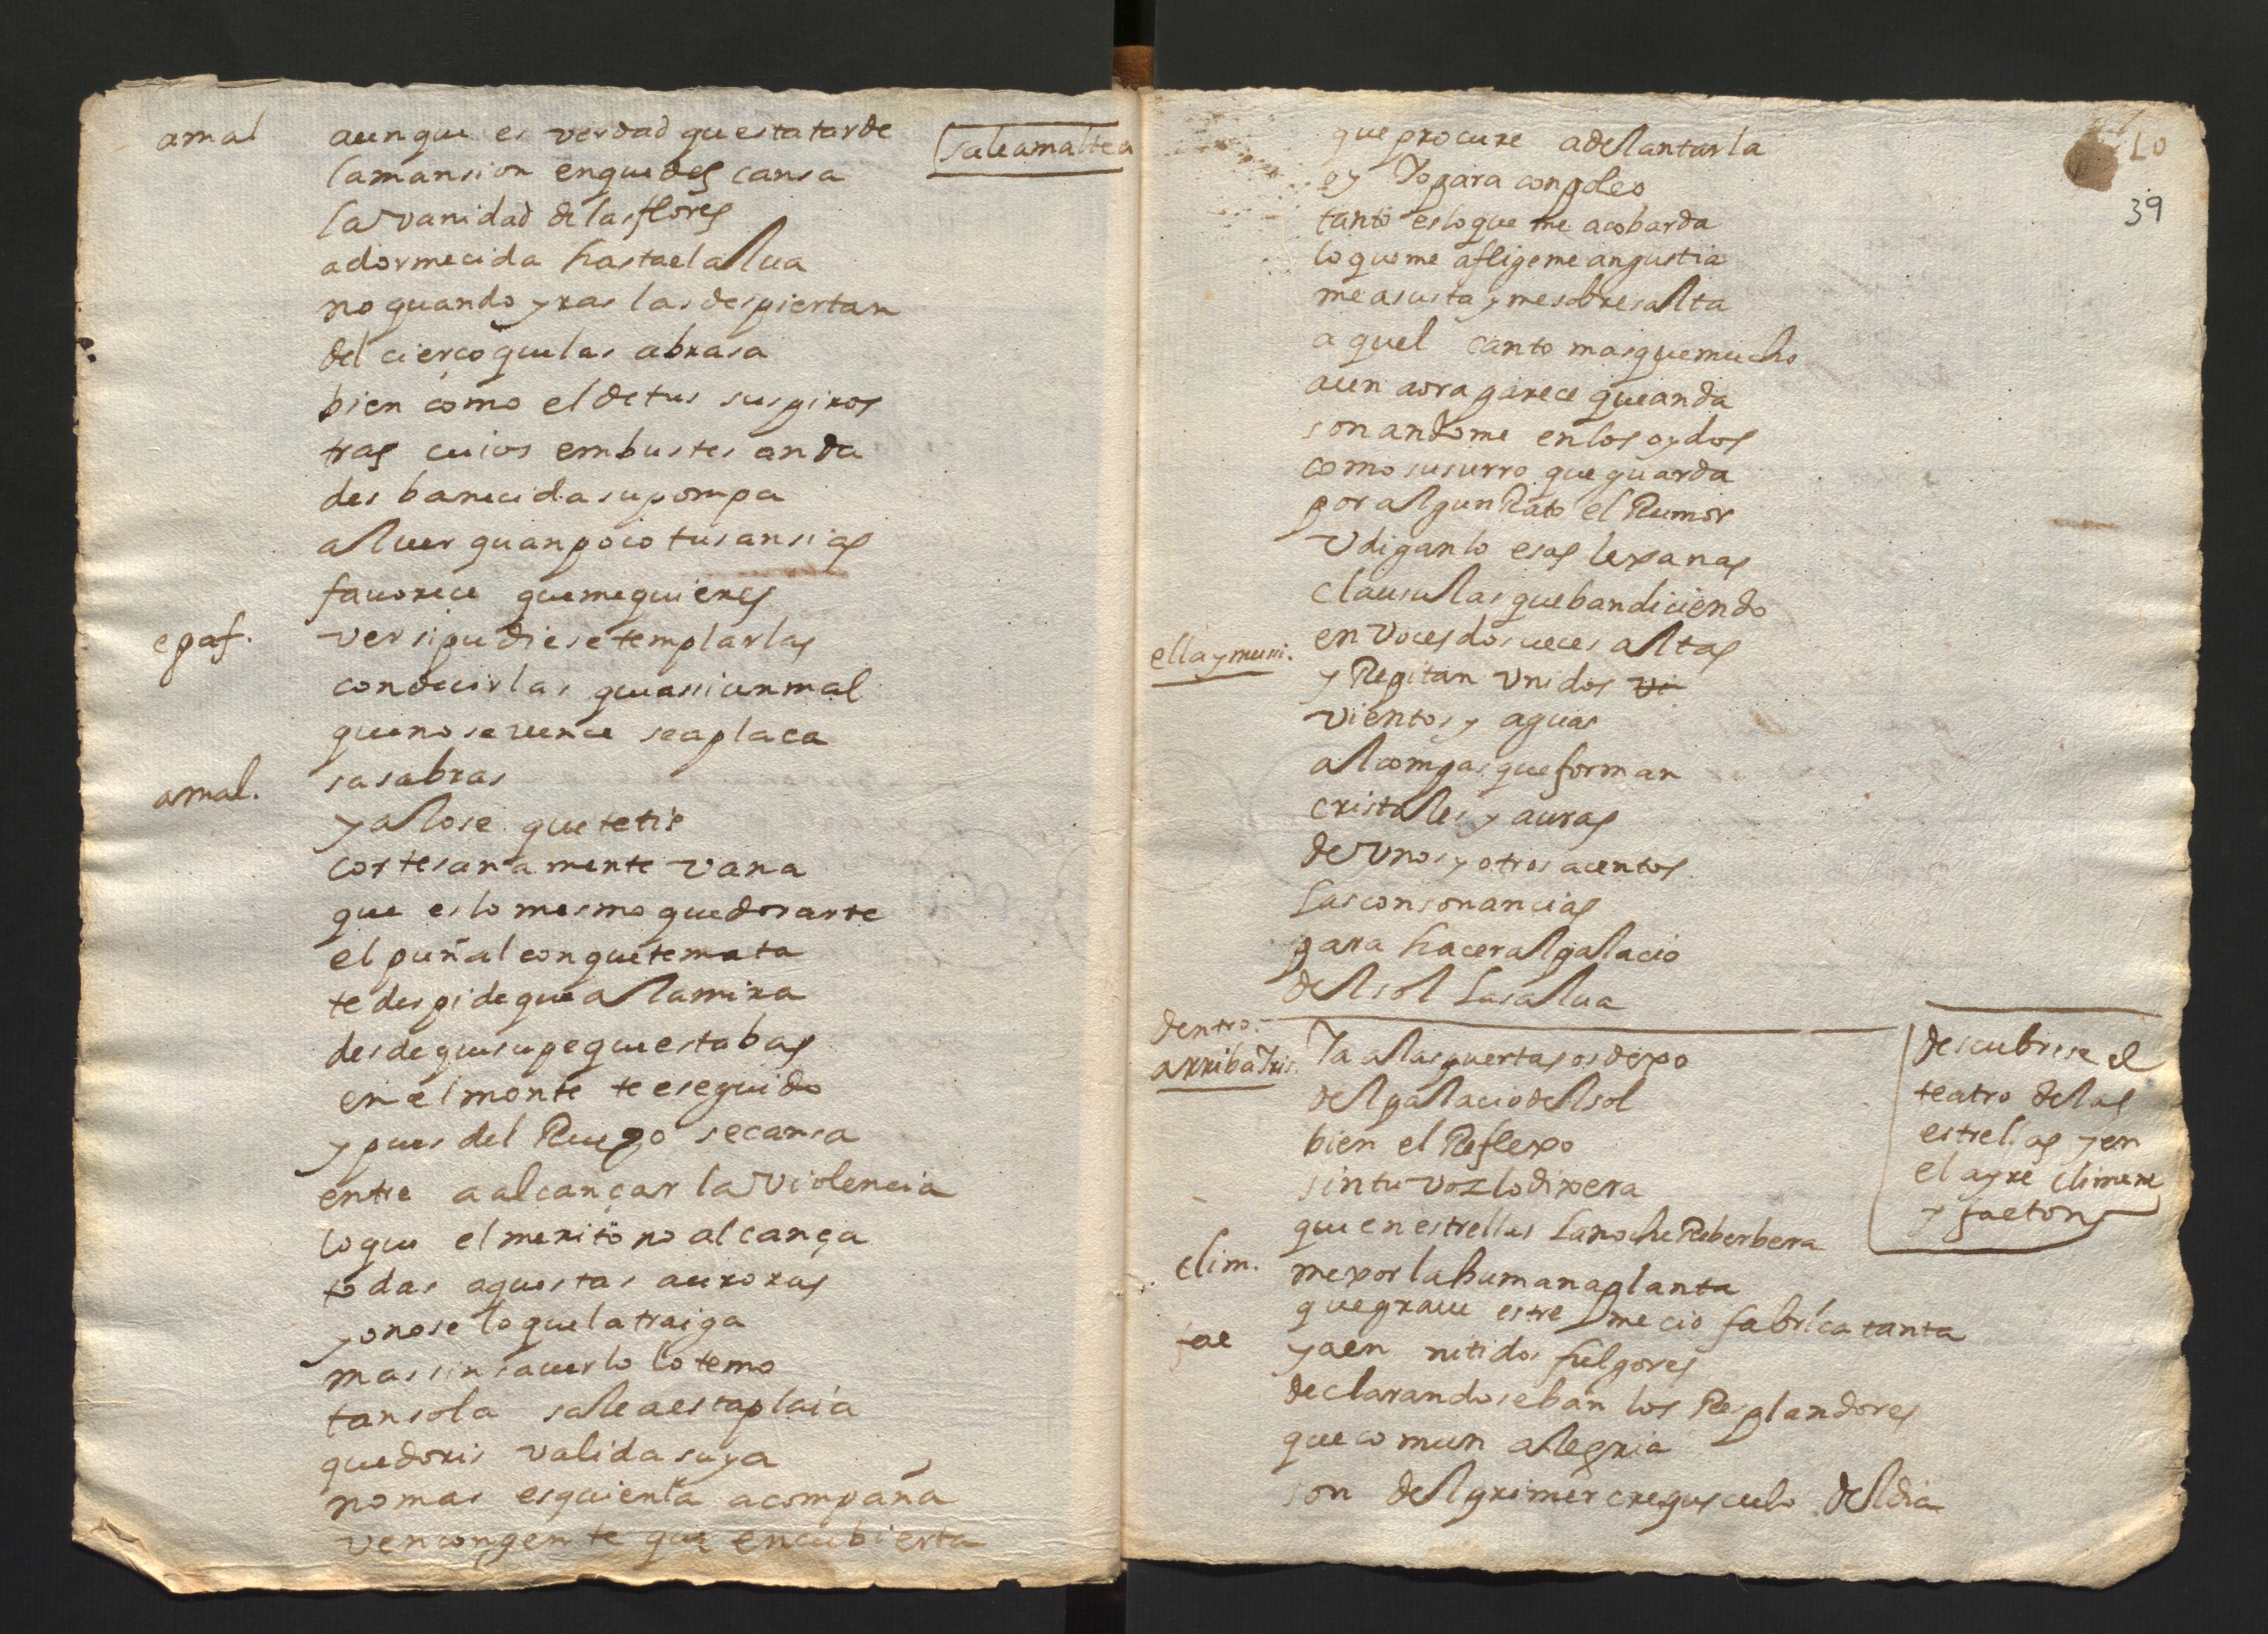 amal aunque es verdad questatarde
saleamaltea
lamansion enquedes cansa
la vanidad de lasflores
adormecida hastaelalua
no quando yras lasdespiertan
del cierço quelas abrasa
bien como el detus suspiros
tras cuios embustes anda
des banecida supompa
aluer quanpoco tusansias
fauorece quemequieres
epaf. ver sipudiesetemplarlas
conducirlas queassiunmal
quenosevence seaplaca
amal. sasabras
yalose quetetis
cortesanamente vana
que eslomesmo quedorarte
elpuñalconquetemata
tedespidequealamira
desdequesupequestabas
en elmonte te eseguido
ypues del Ruego secansa
entre aalcançar laviolencia
loque elmerito no alcança
todas aquestas auroras
yonose loquelatraiga
massinsauerlo lotemo
tansola saleaestaplaia
quedoris validasuya
nomas esquienla acompaña
vencongente que encubierta
LO
39
que procure adelantarla
oy Yopara conpoleo
tanto esloque me acobarda
loqueme afligemeangustia
measusta ymesobresalta
aquel canto masquemucho
aun aora parece queanda
sonandome enlosoydos
comosusurro queguarda
poralgunRato el Rumor
Vdiganlo esas lexanas
clausulas quebandiciendo
ellaymusi. envocesdosveces altas
y Repitan Vnidos vi
vientosy aguas
alcompas queforman
cristalesy auras
deVnosy otros acentos
Lasconsonancias
para haceralpalacio
delsol Lasalua
dentro.
arribaIris. Ya alaspuertasosdexo
delpalaciodelsol
descubrese el
teatro delas
estrellas yen
el ayre climene
y faeton
bien el Reflexo
sintuvozlodixera
quenestrellas Lanoche Reberbera
clim. mexorlahumanaplanta
quegraue estremecio fabricatanta
fae yaen nitidos fulgores
declarandoseban los Resplandores
quecomun alegria
son delprimer crepusculo deldia